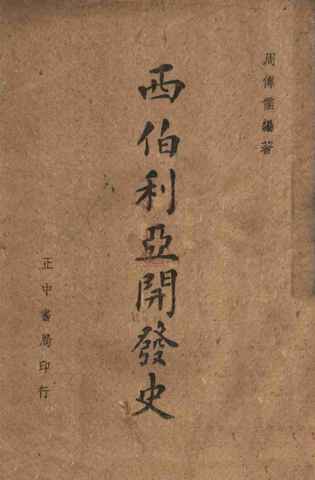 周傳儒編著
西伯利亞開發史
正中書局印行